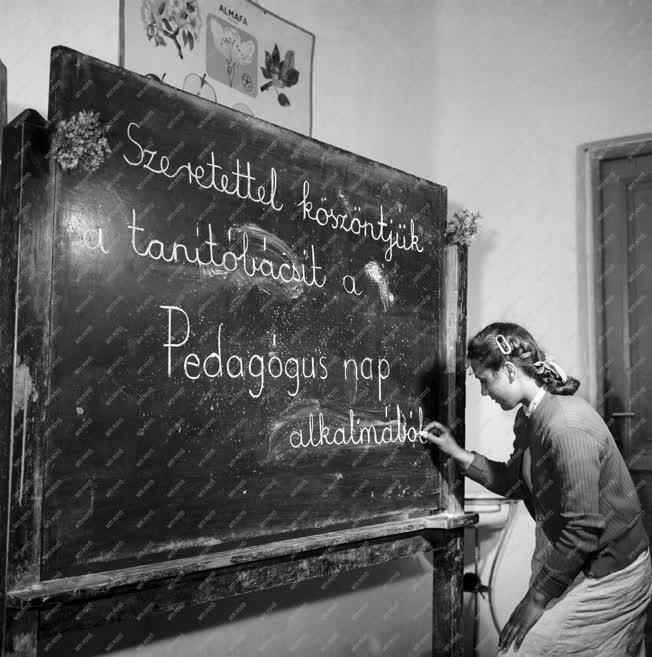 ALMAFA
Szeretettel köszöntjük
a tanítóbácsit a
Pedagógus nap
alkalmából